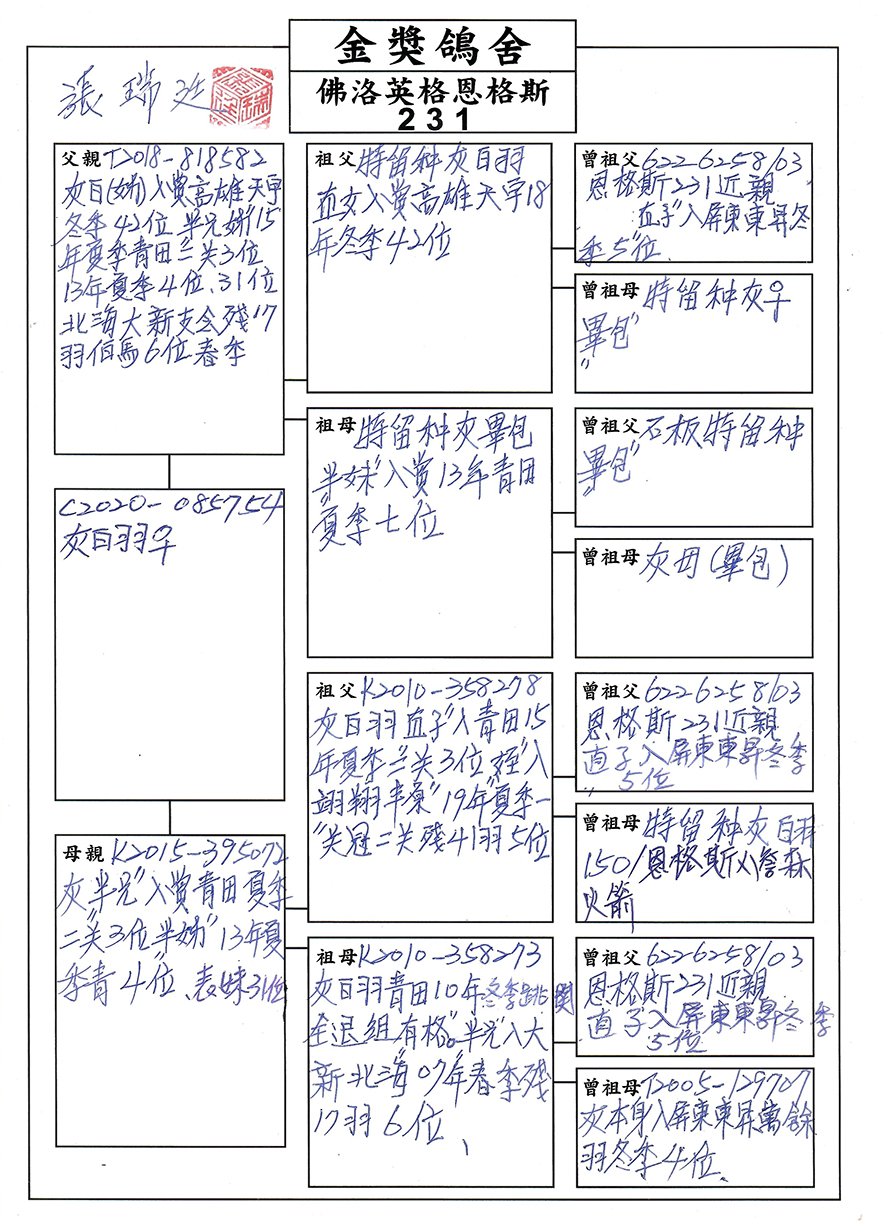 金獎鴿舍
佛洛英格恩格斯
231
張瑞廷
父親 T2018-818582
灰白(姊)入賞高雄天宇
冬季42位 半兄姊"15
年夏季青田"二关3位
13年夏季4位、31位
北海大新支会殘17
羽伯馬6位春季
C2020-085754
灰白羽♀
母親 K2015-395072
灰"半兄"入賞青田夏季
二"关3位半姊"13年夏
季青4"位、表妹31位
祖父 特留种灰白羽
直女入賞高雄天宇18
年冬季42位
祖母 特留种灰畢包
半妹"入賞13年青田
"夏季七"位
祖父 K2010-358278
灰白羽直子"入青田15
年夏季"二关3位"姪"入
翊翔丰"19年"夏季一
"关冠二关殘41羽5位
祖母 K2010-358273
灰白羽青田10年冬季 関
全退組"有格"。半兄"入大
新北海"07"年春季殘
17羽6位
曾祖父 6226258/03
恩格斯231近親
直子"入屏東東昇冬
季5"位
曾祖母 特留种灰♀
畢包"
曾祖父 石板特留种
畢包"
曾祖母 灰母(畢包)
曾祖父 6226258/03
恩格斯231近親
直子入屏東東昇冬季
"5位
曾祖母 特留种灰白羽
150/恩格斯x詹森
火箭
曾祖父 6226258/03
恩格斯231近親
直子入屏東東昇冬季
5位
曾祖母 T2005-129707
灰本身入屏東東昇萬餘
羽冬季4位